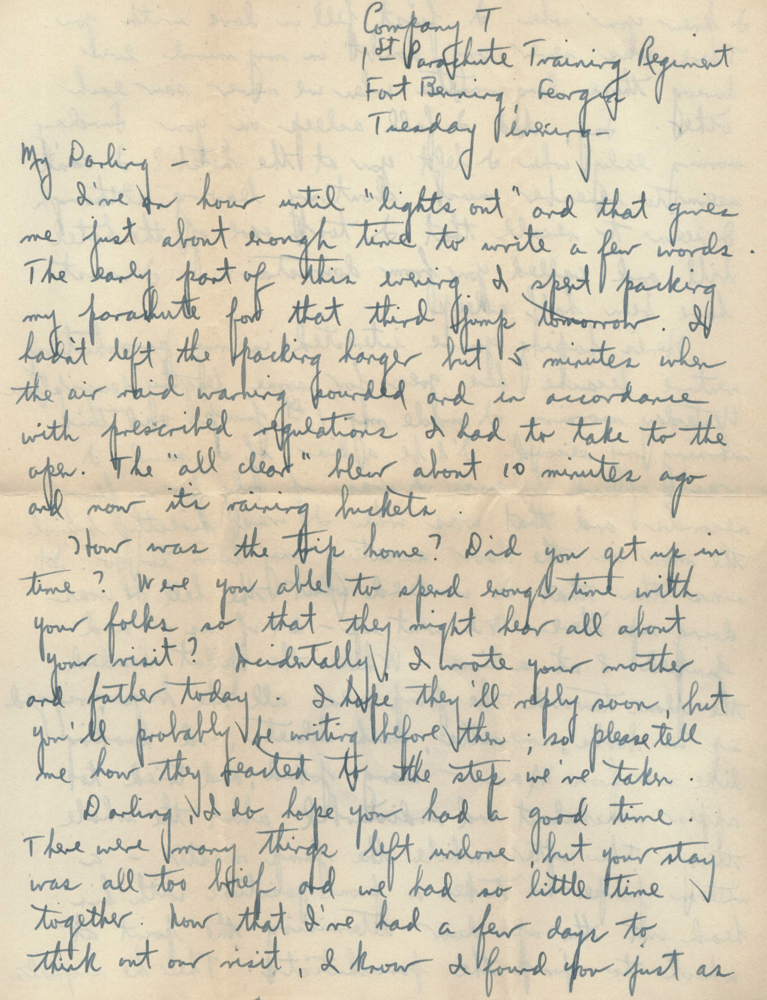 Company T
1st Parachute Training Regiment
Fort Benning, Georgia
Tuesday evening -
My Darling -
I've an hour until "lights out" and that gives
me just about enough time to write a few words.
The early part of this evening I spent packing
my parachute for that third jump tomorrow. I
hadn't left the packing hanger but 5 minutes when
the air raid warning sounded and in accordance
with prescribed regulations I had to take to the
open. The "all clear" blew about 10 minutes ago
and now it's raining buckets.
How was the trip home? Did you get up in
time? Were you able to spend enough time with
your folks so that they might hear all about
your visit? Incidentally, I wrote your mother
and father today. I hope they'll reply soon, but
you'll probably be writing before then; so please tell
me how they reacted to the step we've taken.
Darling, I do hope you had a good time.
There were many things left undone, but your stay
was all too brief and we had so little time
together. Now that I've had a few days to
think out our visit, I know I found you just as